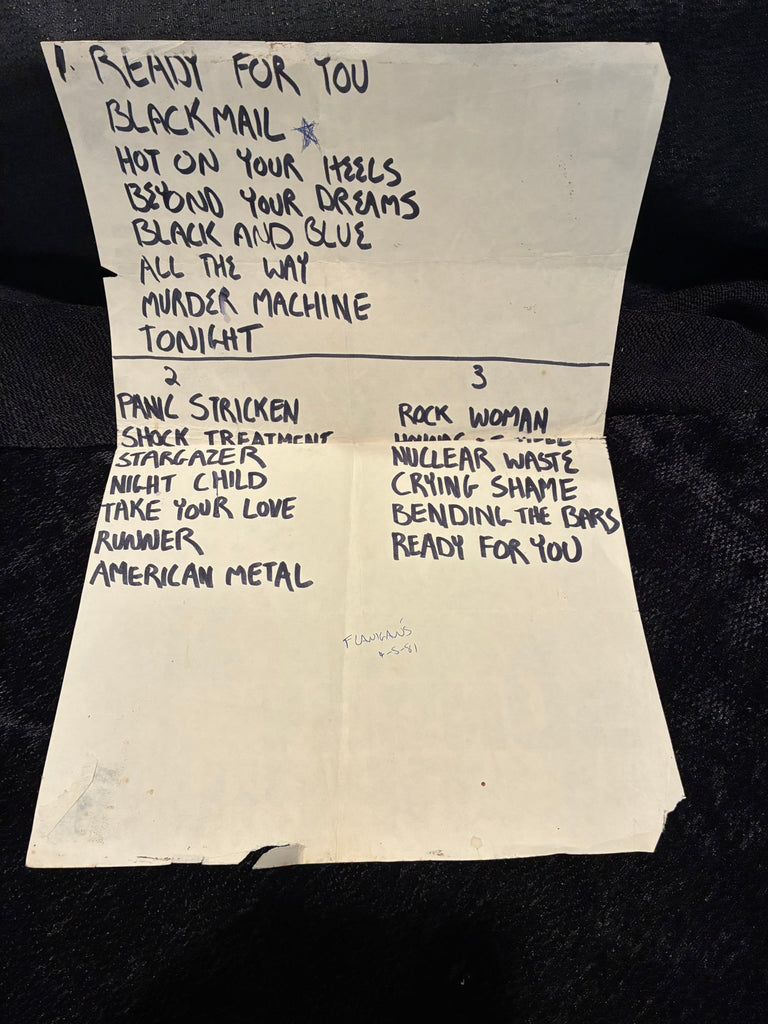 1. READY FOR YOU
BLACKMAIL
HOT ON YOUR HEELS
BEYOND YOUR DREAMS
BLACK AND BLUE
ALL THE WAY
MURDER MACHINE
TONIGHT
2
PANIC STRICKEN
SHOCK TREATMENT
STARGAZER
NIGHT CHILD
TAKE YOUR LOVE
RUNNER
AMERICAN METAL
3
ROCK WOMAN
NUCLEAR WASTE
CRYING SHAME
BENDING THE BARS
READY FOR YOU
FLANIGAN'S
4-5-81